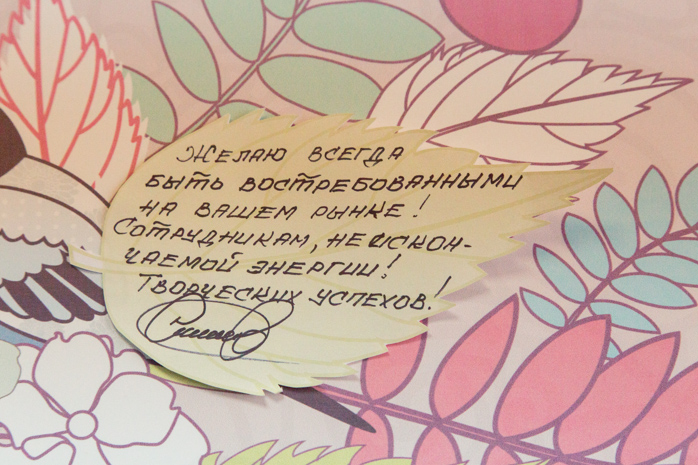 Желаю всегда
быть востребованными
на вашем рынке!
Сотрудникам, неискон-
чаемой энергии!
Творческих успехов!